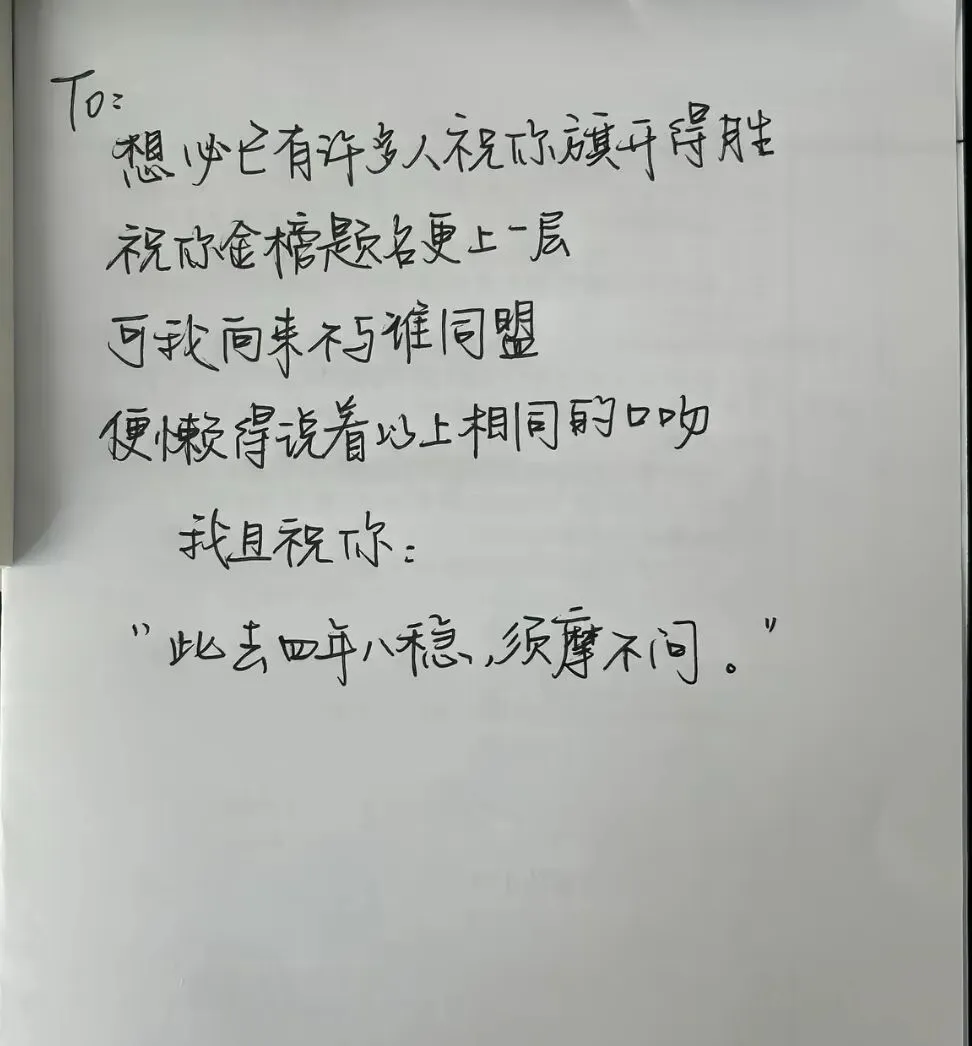 To:
想必已有许多人祝你旗开得胜
祝你金榜题名更上一层
可我向来不与谁同盟
便懒得说着以上相同的口吻
我且祝你:
"此去四年八稳,须摩不问。"